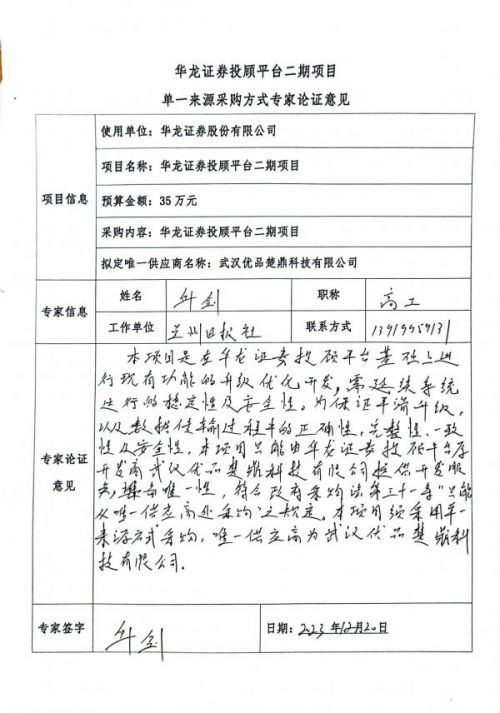 华龙证券投顾平台二期项目
单一来源采购方式专家论证意见
项目信息
使用单位：华龙证券股份有限公司
项目名称：华龙证券投顾平台二期项目
预算金额：35万元
采购内容：华龙证券投顾平台二期项目
拟定唯一供应商名称：武汉优品楚鼎科技有限公司
专家信息
姓名
职称 高工
工作单位 兰州日报社 联系方式
专家论证
意见
本项目是在华龙证券投顾平台基础上进
行现有功能的升级优化开发，需延续系统
运行的稳定性及安全性。为保证平滑升级，
以及数据传输过程中的正确性，完整性、一致
性及安全性，本项目只能由华龙证券投顾平台原
开发商武汉优品楚鼎科技有限公司提供开发服
务，具备唯一性，符合政府采购法第三十一条“只能
从唯一供应商处采购”之规定，本项目须采用单一
来源方式采购，唯一供应商为武汉优品楚鼎科
技有限公司.
专家签字
日期：2023年12月20日